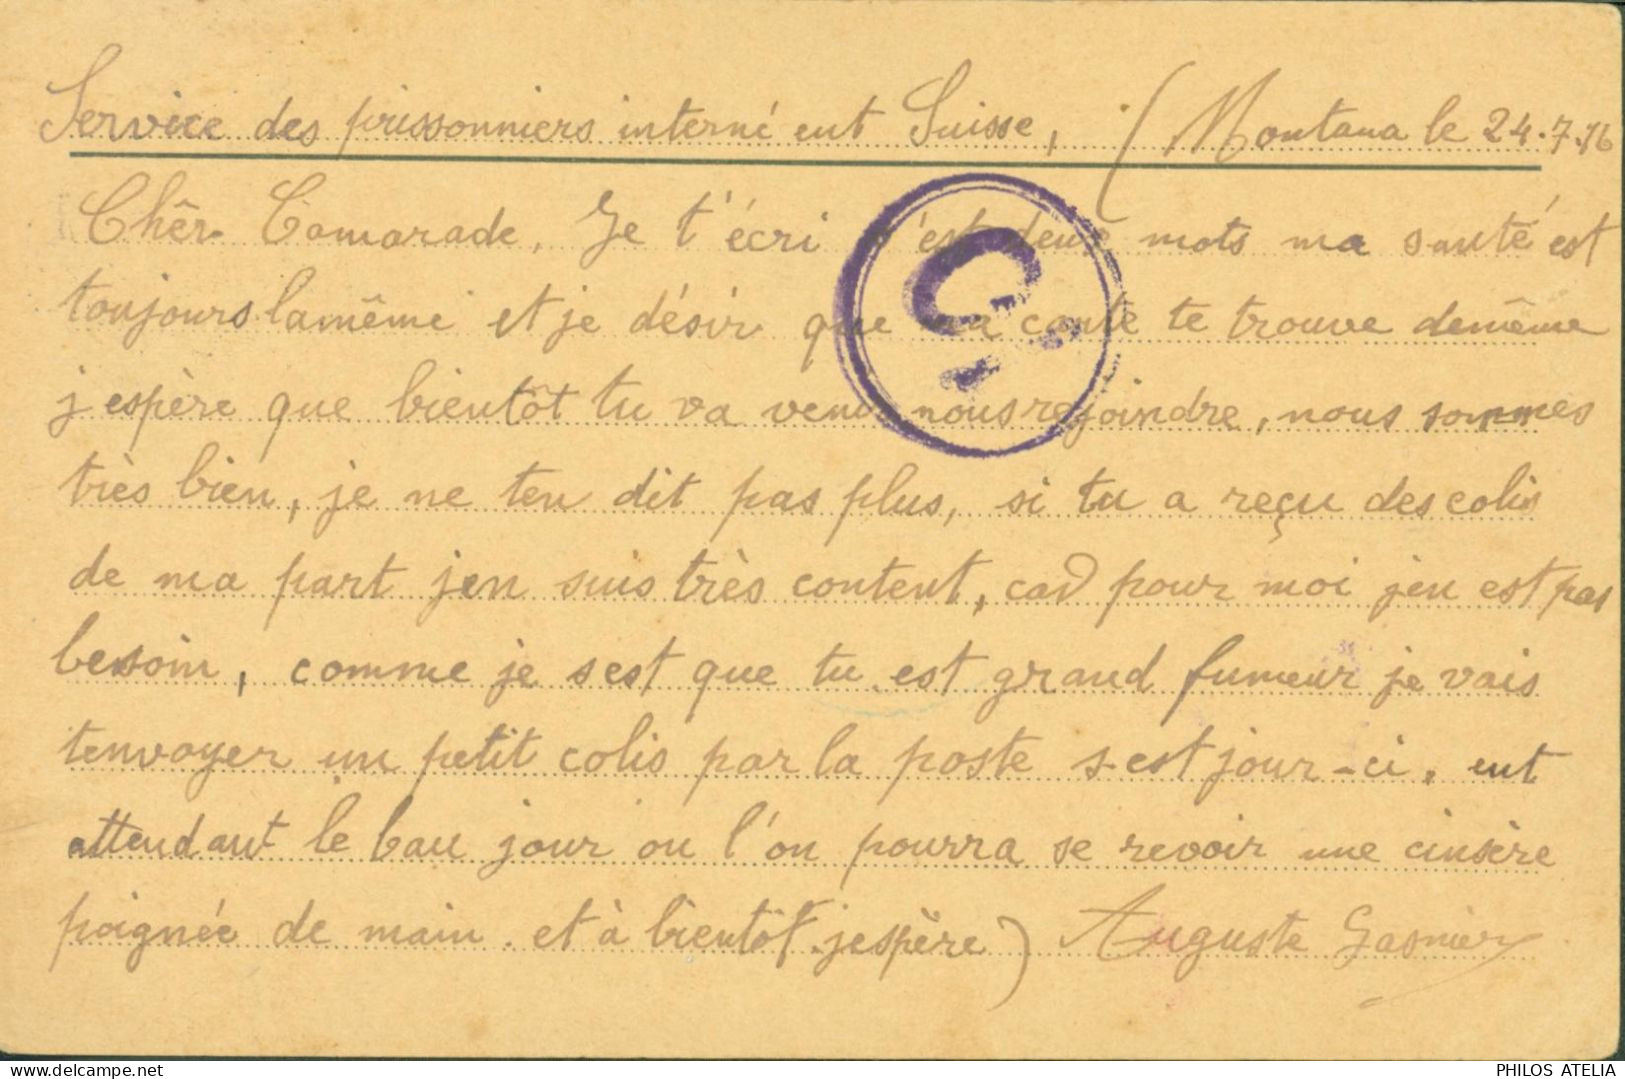 Service des prissonniers interné ent Suisse, (Montana le 24.7.16
Chêr Camarade, Je t'écri s'est deux mots ma santé est
toujours la même et je désir que ma carte te trouve demême
j'espère que bientôt tu va venir nous rejoindre, nous sommes
très bien, je ne ten dit pas plus, si tu a reçu des colis
de ma part jen suis très content, car pour moi jen est pas
besoin, comme je sest que tu est grand fumeur je vais
tenvoyer un petit colis par la poste s-est jour-ci. ent
attendant le bau jour ou l'on pourra se revoir une cinsère
poignée de main. et à bientôt. jespère) Auguste Gasnier
C
PHILOS ATELIA